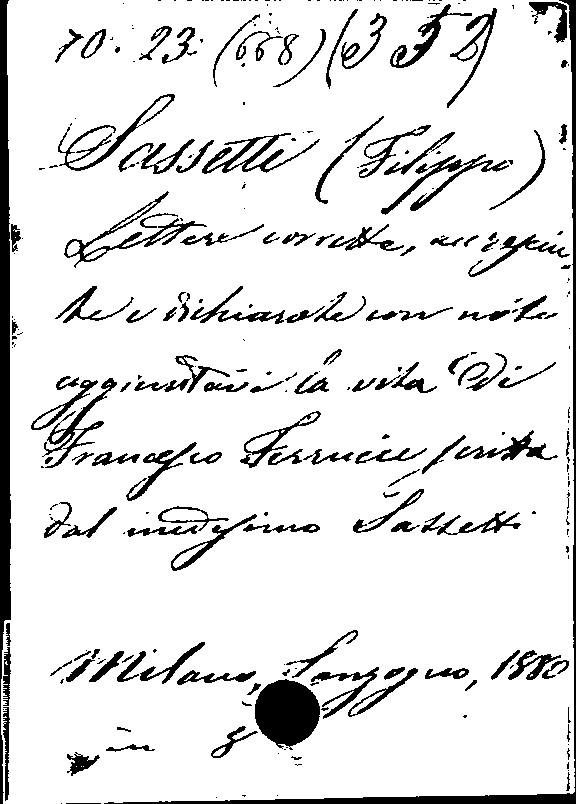 70. 23. (668) (352)
Sassetti (Filippo)
Lettere corrette, accresciu-
te e dichiarate con note
aggiuntavi la vita di
Francesco Ferrucci scritta
dal medesimo Sassetti
Milano, Sonzogno, 1880
in 8